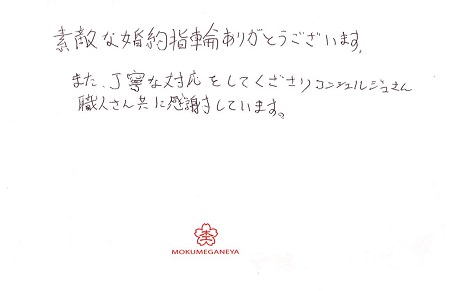 素敵な婚約指輪ありがとうございます。
また、丁寧な対応をしてくださりコンシェルジュさん
職人さん共に感謝しています。
MOKUMEGANEYA